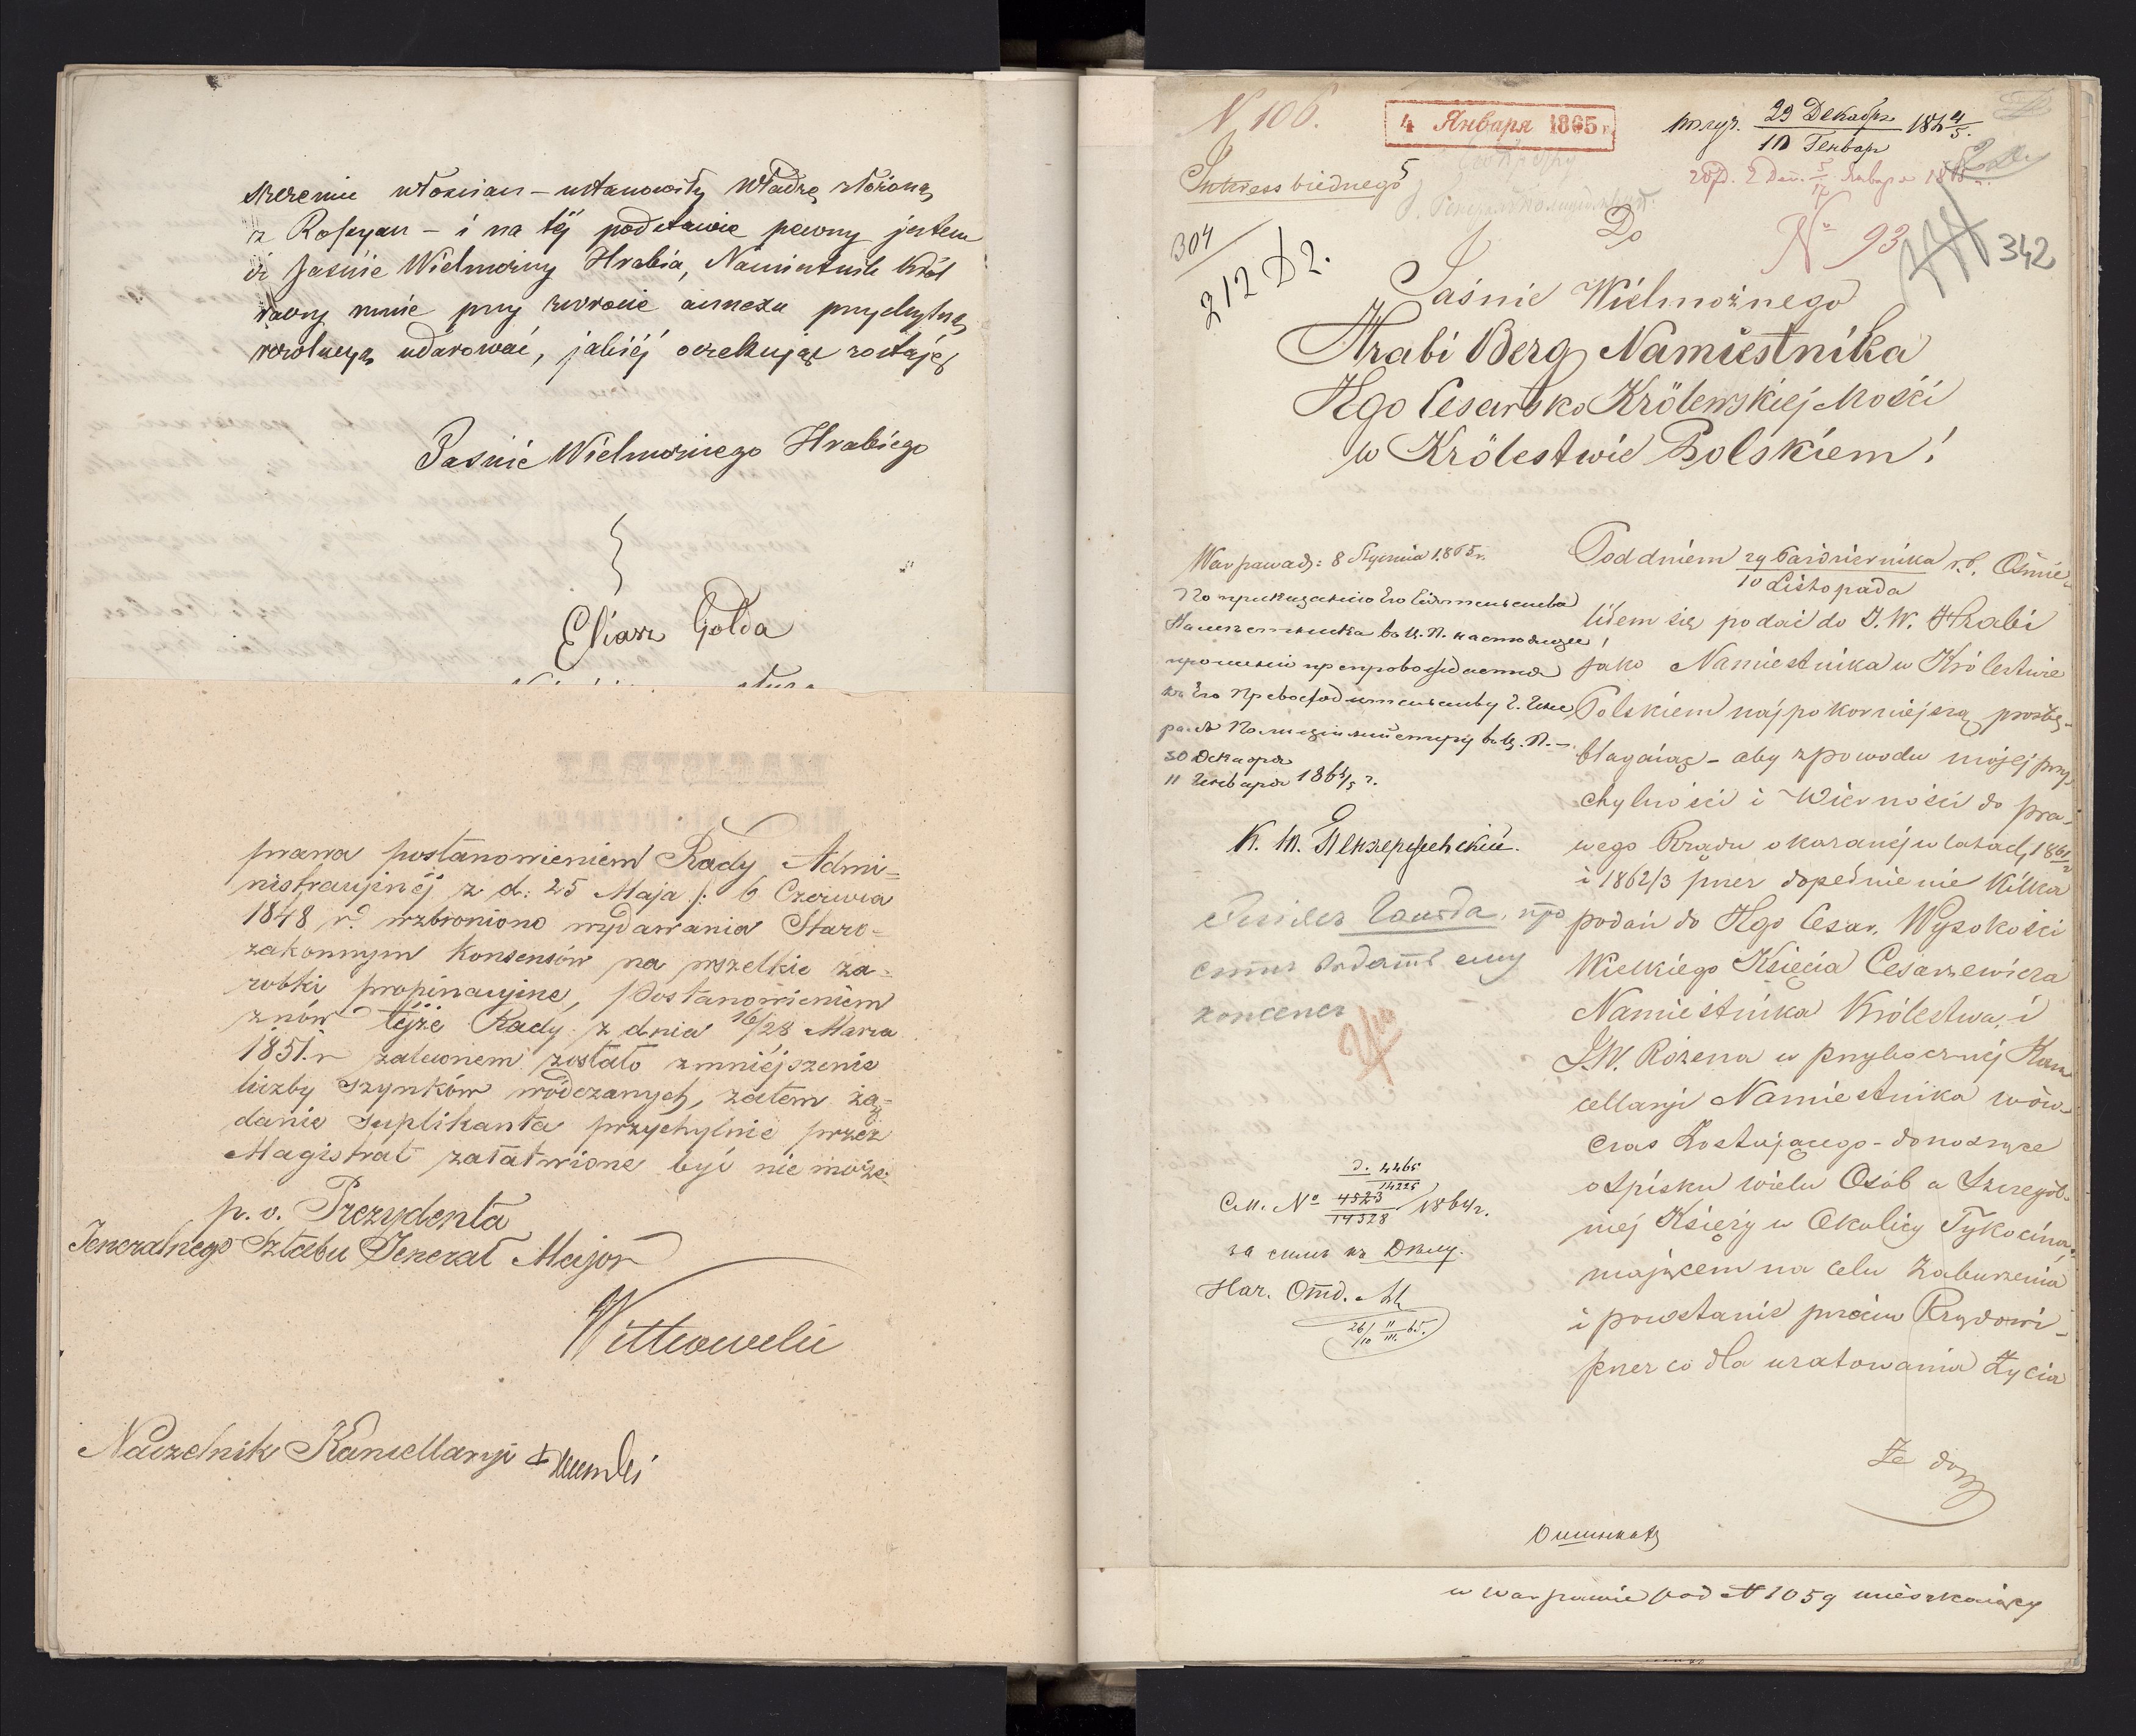 włościan – ustanowiły Władzę złożoną
z Rossyan – i na téj podstawie pewny jestem
że Jaśnie Wielmożny Hrabia, Namiestnik Król
raczy mnie przy zwrocie annexu przychylną
rezolucyą udarować, jakiéj oczekując zostaję
Jaśnie Wielmożnego Hrabiego
Eliasz Golda
prawa postanowieniem Rady Admi=
nistracyjnéj z d: 25 Maja /: 6 Czerwca
1848 r. wzbroniono wydawania Staro=
zakonnym Konsensów na wszelkie za=
robki propinacyjne, Postanowieniem
znów tejże Rady z dnia 16/28 Marca
1851 r zaleconem zostało zmniéjszenie
liczby szynków wódczanych, zatem żą=
danie suplikanta przychylnie przez
Magistrat załatwione być nie może.
p. o. Prezydenta
Jeneralnego Sztabu Jenerał Major
Wittkowski
Naczelnik Kancellaryi
N 106.
4 Января 1865 г.
получ. 29 Декабр. / 10 Генвар 1864/5.
Interess biednego
304
212 D 2.
№ 93
342
Do
Jaśnie Wielmożnego
Hrabi Berg Namiestnika
JKgo Cesarsko Królewskiej Mości
w Królestwie Polskiem!
Warszawa d: 8 Stycznia 1865 r.
По приказанию Его Сіятельства
Намѣстника въ Ц. П. настоящее
прошеніе препровождается
къ Его Превосходительству Г. Гене
ралъ Полиціймейстеру въ Ц. П. –
30 Декабря
11 Генваря 1864/5 г.
Гольда, про
ситъ выдать ему
консенсъ
См. № 4523 / 14528 1864 г.
Нач. Отд.
Pod dniem 29 Października / 10 Listopada r. b. Ośmie-
liłem się podać do J. W. Hrabi
jako Namiestnika w Królestwie
Polskiem najpokorniejszą prośbę-
błagając – aby z powodu mojéj przy
chylności i Wierności do pra-
wego Rządu okazanéj w latach 1861/2
i 1862/3 przez dopełnienie Kilka
podań do JKgo Cesar. Wysokości
Wielkiego Księcia Cesarzewicza
Namiestnika Królestwa, i
JW. Rożena w przybocznéj Kan
cellaryi Namiestnika wów-
czas Zostającego – donoszące
o Spisku wielu Osób a Szczegól-
niej Księży w Okolicy Tykocina,
mającem na celu Zaburzenia
i powstanie przeciw Rządowi -
przez co dla uratowania Życia
w Warszawie pod N 1059 mieszkający